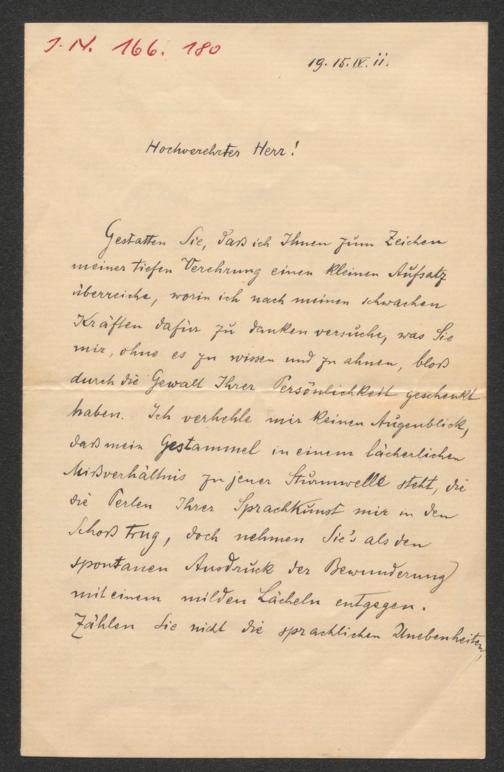 J. N. 166. 180
19. 15. IV. ii.
Hochverehrter Herr!
Gestatten Sie, daß ich Ihnen zum Zeichen
meiner tiefen Verehrung einen kleinen Aufsatz
überreiche, worin ich nach meinen schwachen
Kräften dafür zu danken versuche, was Sie
mir, ohne es zu wissen und zu ahnen, bloß
durch die Gewalt Ihrer Persönlichkeit geschenkt
haben. Ich verhehle mir keinen Augenblick,
daß mein Gestammel in einem lächerlichen
Mißverhältnis zu jener Sturmwelle steht, die
die Perlen Ihrer Sprachkunst mir in den
Schoß trug, doch nehmen Sie's als den
spontanen Ausdruck der Bewunderung
mit einem milden Lächeln entgegen.
Zählen Sie nicht die sprachlichen Unebenheiten,